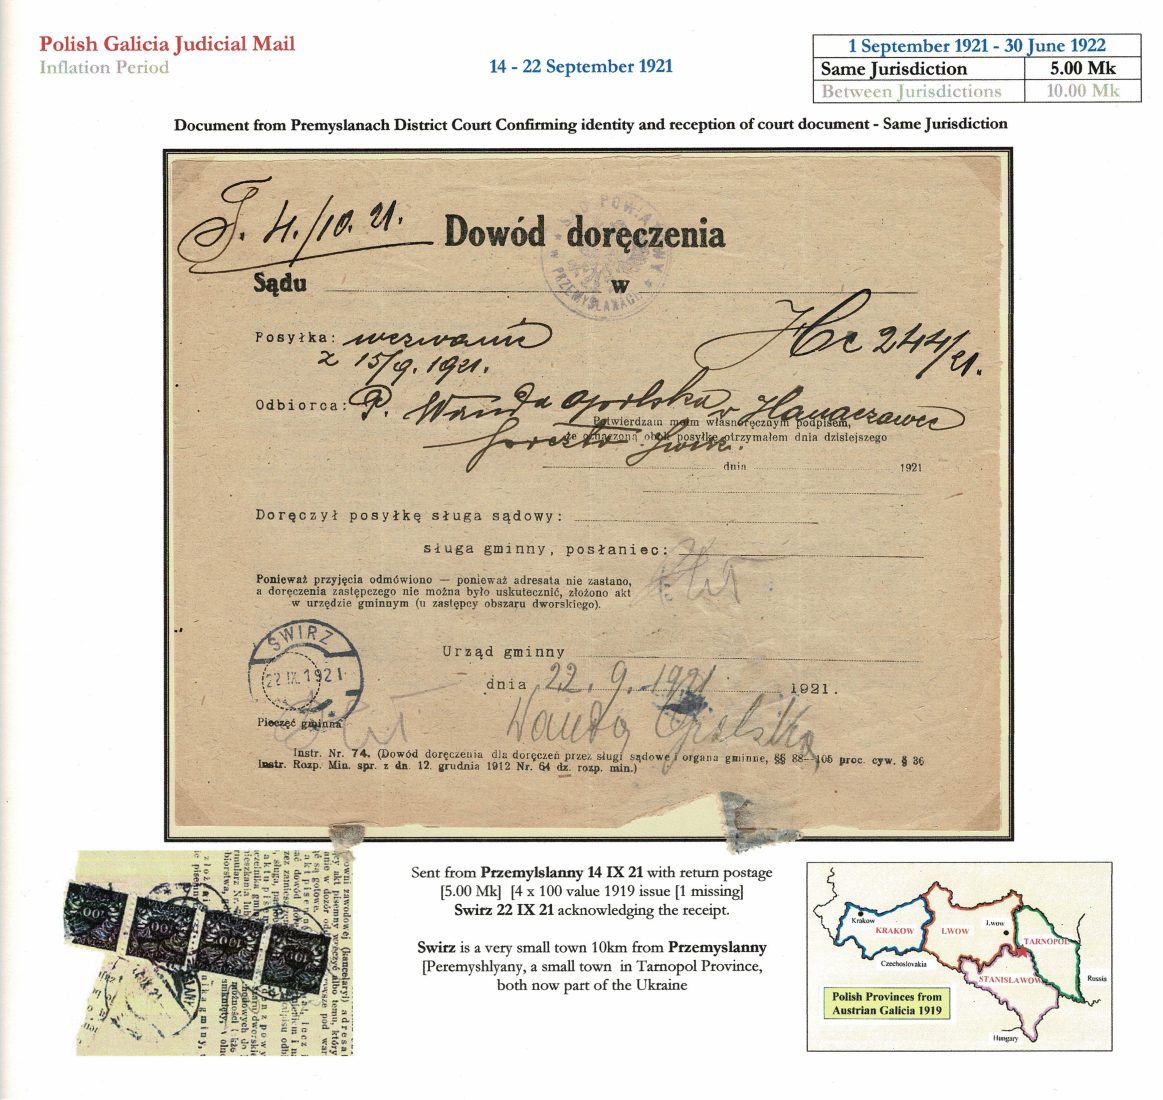 Polish Galicia Judicial Mail
Inflation Period
14 - 22 September 1921
1 September 1921 - 30 June 1922
Same Jurisdiction 5.00 Mk
Between Jurisdictions 10.00 Mk
Document from Premyslanach District Court Confirming identity and reception of court document - Same Jurisdiction
4./10. 21.
Dowód doręczenia
SĄD POWIATOWY
w PRZEMYŚLANACH
Sądu w
Posyłka: wezwanie
z 15/9. 1921.
Hc 244/21.
Odbiorca: P. Wanda Opolska w Hanaczowce
Potwierdzam moim własnoręcznym podpisem,
że oznaczoną obok posyłkę otrzymałem dnia dzisiejszego
dnia 1921
Doręczył posyłkę sługa sądowy:
sługa gminny, posłaniec:
Ponieważ przyjęcia odmówiono — ponieważ adresata nie zastano,
a doręczenia zastępczego nie można było uskutecznić, złożono akt
w urzędzie gminnym (u zastępcy obszaru dworskiego).
ŚWIRZ
22 IX. 1921
Urząd gminny
dnia 22. 9. 1921 1921.
Pieczęć gminna
Wanda Opolska
Instr. Nr. 74. (Dowód doręczenia dla doręczeń przez sługi sądowe i organa gminne, §§ 88—106 proc. cyw. § 36
Instr. Rozp. Min. spr. z dn. 12. grudnia 1912 Nr. 64 dz. rozp. min.)
100 100 100 100
Sent from Przemylslanny 14 IX 21 with return postage
[5.00 Mk] [4 x 100 value 1919 issue [1 missing]
Swirz 22 IX 21 acknowledging the receipt.
Swirz is a very small town 10km from Przemyslanny
[Peremyshlyany, a small town in Tarnopol Province,
both now part of the Ukraine
Krakow
KRAKOW
LWOW
Lwow
TARNOPOL
Czechoslovakia
STANISLAWOW
Russia
Hungary
Polish Provinces from
Austrian Galicia 1919